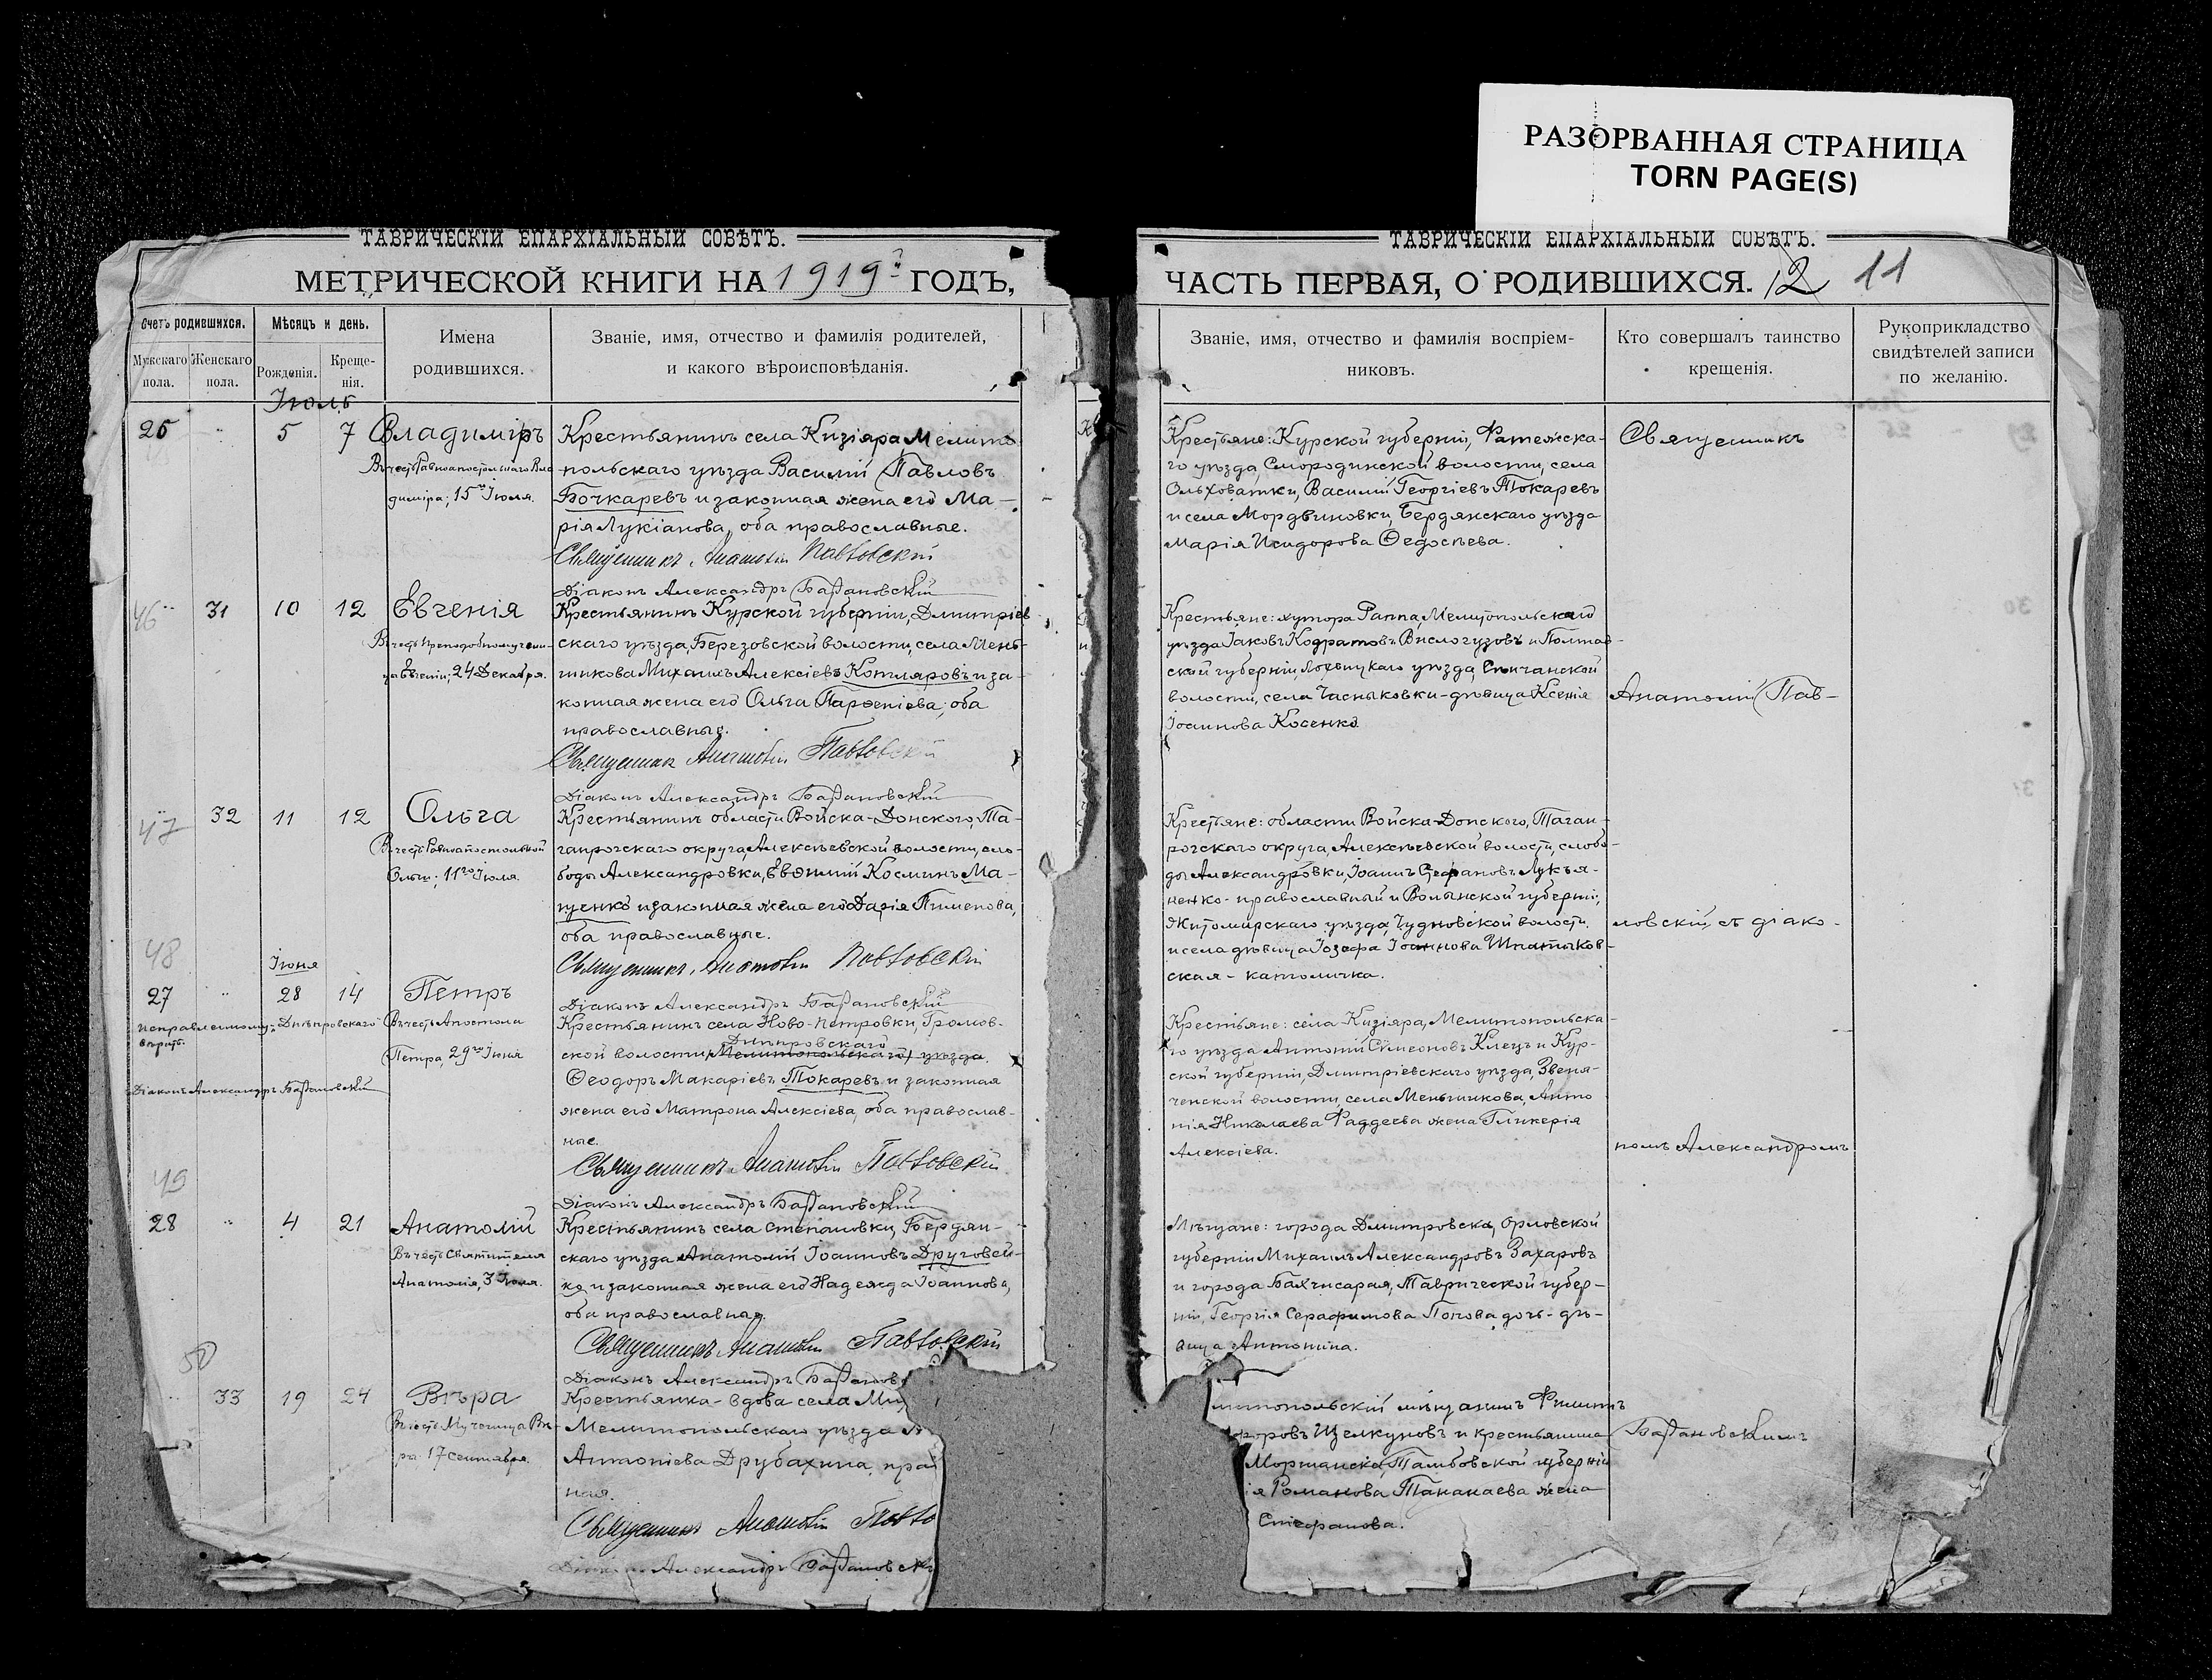 РАЗОРВАННАЯ СТРАНИЦА
TORN PAGE(S)
ТАВРИЧЕСКІЙ ЕПАРХІАЛЬНЫЙ СОВѢТЪ.
МЕТРИЧЕСКОЙ КНИГИ НА 1919й ГОДЪ,
Счетъ родившихся.
Мужскаго пола.
Женскаго пола.
Мѣсяцъ и день.
Рожденія.
Креще-
нія.
Имена
родившихся.
Званіе, имя, отчество и фамилія родителей,
и какого вѣроисповѣданія.
Іюль
26 5 7 Владиміръ
Въ честь Равноапостольнаго Вла-
диміра; 15го Іюля.
Крестьянинъ села Кизіяра Мелито-
польскаго уѣзда Василій Павловъ
Бочкаревъ и законная жена его Ма-
рія Лукіанова, оба православные.
Священникъ Анатолій Павловскій
Діаконъ Александръ
46 31 10 12 Евгенія
Въ честь Преподобномучени-
цы Евгеніи; 24 Декабря.
Крестьянинъ Курской губерніи, Дмитріев-
скаго уѣзда, Березовской волости, села Мень-
шикова Михаилъ Алексіевъ Котляровъ и за-
конная жена его Ольга Парѳеніева, оба
православные.
Священникъ Анатолій Павловскій
Діаконъ Александръ
47 32 11 12 Ольга
Въ честь Равноапостольной
Ольги; 11го Іюля.
Крестьянинъ области Войска-Донского, Та-
ганрогскаго округа, Алексѣевской волости, сло-
боды Александровки, Евѳимій Косминъ Ма-
ценко и законная жена его Дарія Пименова,
оба православные.
Священникъ Анатолій Павловскій
Діаконъ Александръ
48
Іюня
27 28 14 Петръ
Въ честь Апостола
Петра, 29го Іюня
исправленному: Днѣпровскаго
вѣрить.
Діаконъ Александръ
Крестьянинъ села Ново-Петровки, Громов-
Днѣпровскаго
ской волости, Мелитопольскаго уѣзда
Ѳеодоръ Макаріевъ Токаревъ и законная
жена его Матрона Алексіева, оба православ-
ные.
Священникъ Анатолій Павловскій
Діаконъ Александръ
49
28 4 21 Анатолій
Въ честь Святителя
Анатолія, 3 Іюля.
Крестьянинъ села Степановки, Бердян-
скаго уѣзда Анатолій Іоанновъ Друговей-
ко и законная жена его Надежда Іоаннова,
оба православная.
Священникъ Анатолій Павловскій
Діаконъ Александръ
50
33 19 24 Вѣра
Въ честь Мученицы Вѣ-
ры 17 Сентября.
Крестьянка-вдова села
Мелитопольскаго уѣзда
Антоніева Друбахина, прав
ная.
Священникъ Анатолій Павло
Діаконъ Александръ
ТАВРИЧЕСКІЙ ЕПАРХІАЛЬНЫЙ СОВѢТЪ.
ЧАСТЬ ПЕРВАЯ, О РОДИВШИХСЯ. 12 11
Званіе, имя, отчество и фамилія воспріем-
никовъ.
Кто совершалъ таинство
крещенія.
Рукоприкладство
свидѣтелей записи
по желанію.
Крестьяне: Курской губерніи, Фатежска-
го уѣзда, Смородинской волости, села
Ольховатки, Василій Георгіевъ Токаревъ
и села Мордвиновки, Бердянскаго уѣзда
Марія Исидорова Ѳедосѣева.
Священникъ
Крестьяне: хутора Раппа, Мелитопольскаго
уѣзда Іаковъ Кодратовъ Вислогузовъ и Полтав-
ской губерніи, Лохвицкаго уѣзда, Сенчанской
волости, села Часныковки-дѣвица Ксенія
Іоаннова Косенко
Анатолій Пав-
Крестьяне: области Войска-Донского, Таган-
рогскаго округа, Алексѣевской волости, слобо-
ды Александровки, Іоаннъ Стефановъ Лукья-
ненко-православный и Волынской губерніи,
Житомирскаго уѣзда, Чудновской волости,
и села дѣвица Іозефа Іоаннова
ская-католичка.
ловскій, съ діако-
Крестьяне: села Кизіяра, Мелитопольска-
го уѣзда Антоній Симеоновъ Клецъ и Кур-
ской губерніи, Дмитріевскаго уѣзда, Звеня-
ченской волости, села Меньшикова, Анто
нія Николаева Фаддеева жена Гликерія
Алексіева.
номъ Александромъ
Мѣщане: города Дмитровска, Орловской
губерніи Михаилъ Александровъ Захаровъ
и города Бахчисарая, Таврической губер-
ніи, Георгія Серафимова Попова дочь-дѣ-
вица Антонина.
литопольскій мѣщанинъ Филиппъ
оровъ Щелкуновъ и крестьянина
Моршанска, Тамбовской губерніи
ія Романова Танакаева жена
Стефанова.